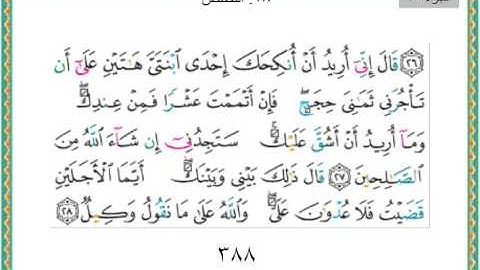 ٢٨ـ القصص
﴿٢٦﴾ قَالَ إِنِّيٓ أُرِيدُ أَنْ أُنكِحَكَ إِحْدَى ٱبْنَتَيَّ هَٰتَيْنِ عَلَىٰٓ أَن
تَأْجُرَنِي ثَمَٰنِيَ حِجَجٍۖ فَإِنْ أَتْمَمْتَ عَشْرًا فَمِنْ عِندِكَۖ
وَمَآ أُرِيدُ أَنْ أَشُقَّ عَلَيْكَۚ سَتَجِدُنِيٓ إِن شَآءَ ٱللَّهُ مِنَ
ٱلصَّٰلِحِينَ ﴿٢٧﴾ قَالَ ذَٰلِكَ بَيْنِي وَبَيْنَكَۖ أَيَّمَا ٱلْأَجَلَيْنِ
قَضَيْتُ فَلَا عُدْوَٰنَ عَلَيَّۖ وَٱللَّهُ عَلَىٰ مَا نَقُولُ وَكِيلٌ ﴿٢٨﴾
٣٨٨